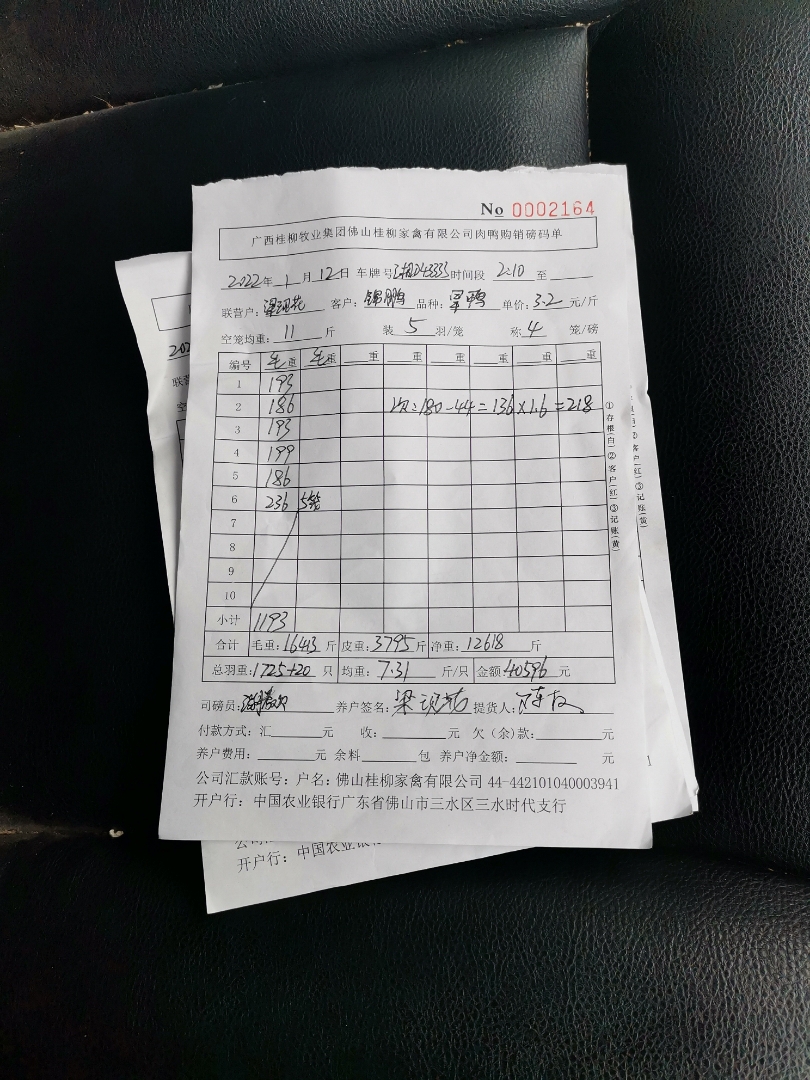 No 0002164
广西桂柳牧业集团佛山桂柳家禽有限公司肉鸭购销磅码单
2022年 1 月 12日 车牌号 时间段 2:10 至
联营户: 梁现花 客户: 锦鹏 品种: 鸭 单价: 3.2 元/斤
空笼均重: 11 斤 装 5 羽/笼 称 4 笼/磅
编号 毛重 毛重 重 重 重 重 重 重
1 193
2 186 次:180-44=136×1.6=218
3 193
4 199
5 186
6 236 5笼
7
8
9
10
小计 1193
合计 毛重: 16413 斤 皮重: 3795 斤 净重: 12618 斤
总羽重: 1725+20 只 均重: 7.31 斤/只 金额: 40596 元
司磅员: 养户签名: 梁现花 提货人:
付款方式: 汇 元 收: 元 欠(余)款: 元
养户费用: 元 余料 包 养户净金额: 元
公司汇款账号: 户名: 佛山桂柳家禽有限公司 44-442101040003941
开户行: 中国农业银行广东省佛山市三水区三水时代支行
①存根(白)②客户(红)③记账(黄)
开户行: 中国农业银